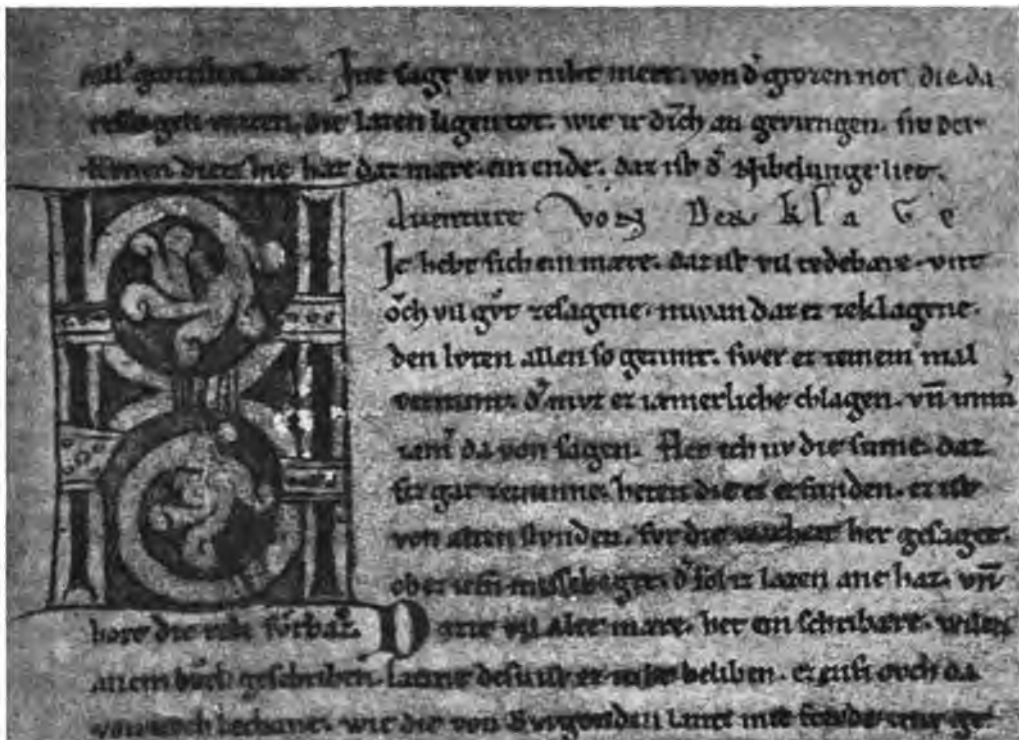 Ine sage iv nv niht mere. von d' grozen not. die da
erslagen waren. die lazen ligen tot. wie ir dīch an geviengen. sit der
hvnen diet. hie hat daz mære. ein ende. daz ist d' Nibelunge liet.
Auenture Von Der k l a G e
Ie hebt sich ein mære. daz ist vil redebære. vnt
oͮch vil gvt zesagene. niwan daz ez zeklagene.
den lvten allen so gezimt. swer ez zeinem mal
vernimt. d' mvz ez iamerliche chlagen. vn̄ imm'
iam' da von sagen. Het ich nv die sinne. daz
siz gar zeminne. heten die ez erfunden. ez ist
von alten stvnden. fvr die warheit her gesaget.
ober iem missehaget. d' sol iz lazen ane haz. vn̄
hore die rede fvrbaz. Ditze vil alte mære. het ein schribære. wilen
an ein bvch geschriben. latine desn ist ez niht beliben. ez ensi ovch da
von noch bechant. wie die von Burgonden lant mit frevde in ir ge